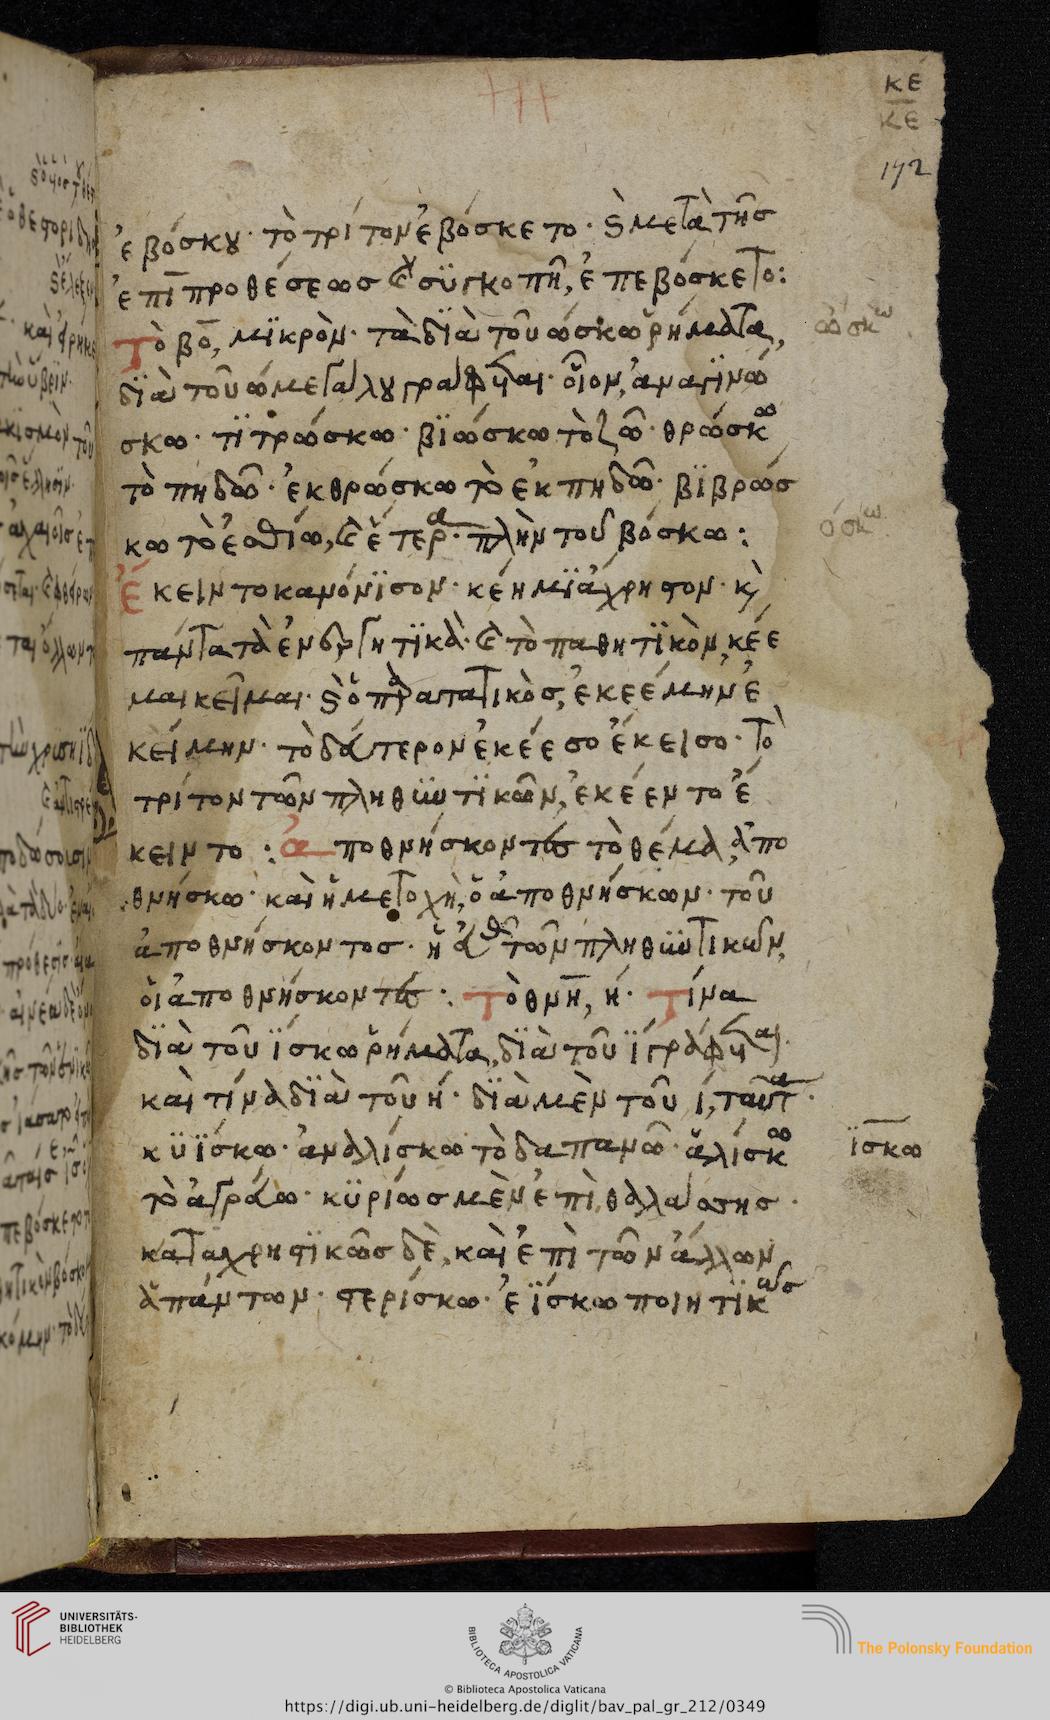 κε
κε
172
ἐβόσκου· τὸ τρίτον ἐβόσκετο· καὶ μετὰ τῆς
ἐπῒ προθέσεως καὶ συγκοπῆ, ἐπεβόσκετο:
Τὸ βο, μϊκρὸν· τὰ δϊὰ τοῦ ώσκω ῥήματα,
ώσκω
δϊὰ τοῦ ω μεγάλου γράφεται· οἷον, ἀναγϊνώ
σκω· τϊτρώσκω· βϊώσκω τὸ ζῶ· θρώσκω
τὸ πηδῶ· ἐκθρώσκω τὸ ἐκπηδῶ· βϊβρώσ
κω τὸ ἐσθίω, καὶ ἕτερα· πλὴν τοῦ βόσκω:
όσκω
Ἔκειντο κανόνϊσον· κέημϊ ἄχρηστον· καὶ
πάντα τὰ ἐνεργητϊκὰ· καὶ τὸ παθητϊκὸν, κέε
μαι κεῖμαι· καὶ ὁ παρατατικὸς, ἐκεέμην ἐ
κείμην· τὸ δεύτερον ἐκέεσο ἔκεισο· τὸ
τρίτον τῶν πληθϋντϊκῶν, ἐκέεντο ἔ
κειντο: ἀποθνήσκοντες τὸ θέμα, ἀπο
θνήσκω· καὶ ἡ μετοχὴ, ὁ ἀποθνήσκων· τοῦ
ἀποθνήσκοντος· ἡ εὐθεῖα τῶν πληθϋντικῶν,
οἱ ἀποθνήσκοντες: Τὸ θνη, ή· Τίνα
δϊὰ τοῦ ΐσκω ῥήματα, δϊὰ τοῦ ϊ γράφεται·
καὶ τίνα δϊὰ τοῦ ή· δϊὰ μὲν τοῦ ί, ταῦτα·
κϋΐσκω· ἀναλίσκω τὸ δαπανῶ· ἁλίσκω
ΐσκω
τὸ ἀγρεύω· κϋρίως μὲν ἐπὶ θαλάσσης·
καταχρηστϊκῶς δὲ, καὶ ἐπὶ τῶν ἄλλων
ἁπάντων· στερίσκω· ἐΐσκω ποιητϊκῶς
UNIVERSITÄTS-
BIBLIOTHEK
HEIDELBERG
BIBLIOTECA APOSTOLICA VATICANA
The Polonsky Foundation
© Biblioteca Apostolica Vaticana
https://digi.ub.uni-heidelberg.de/diglit/bav_pal_gr_212/0349